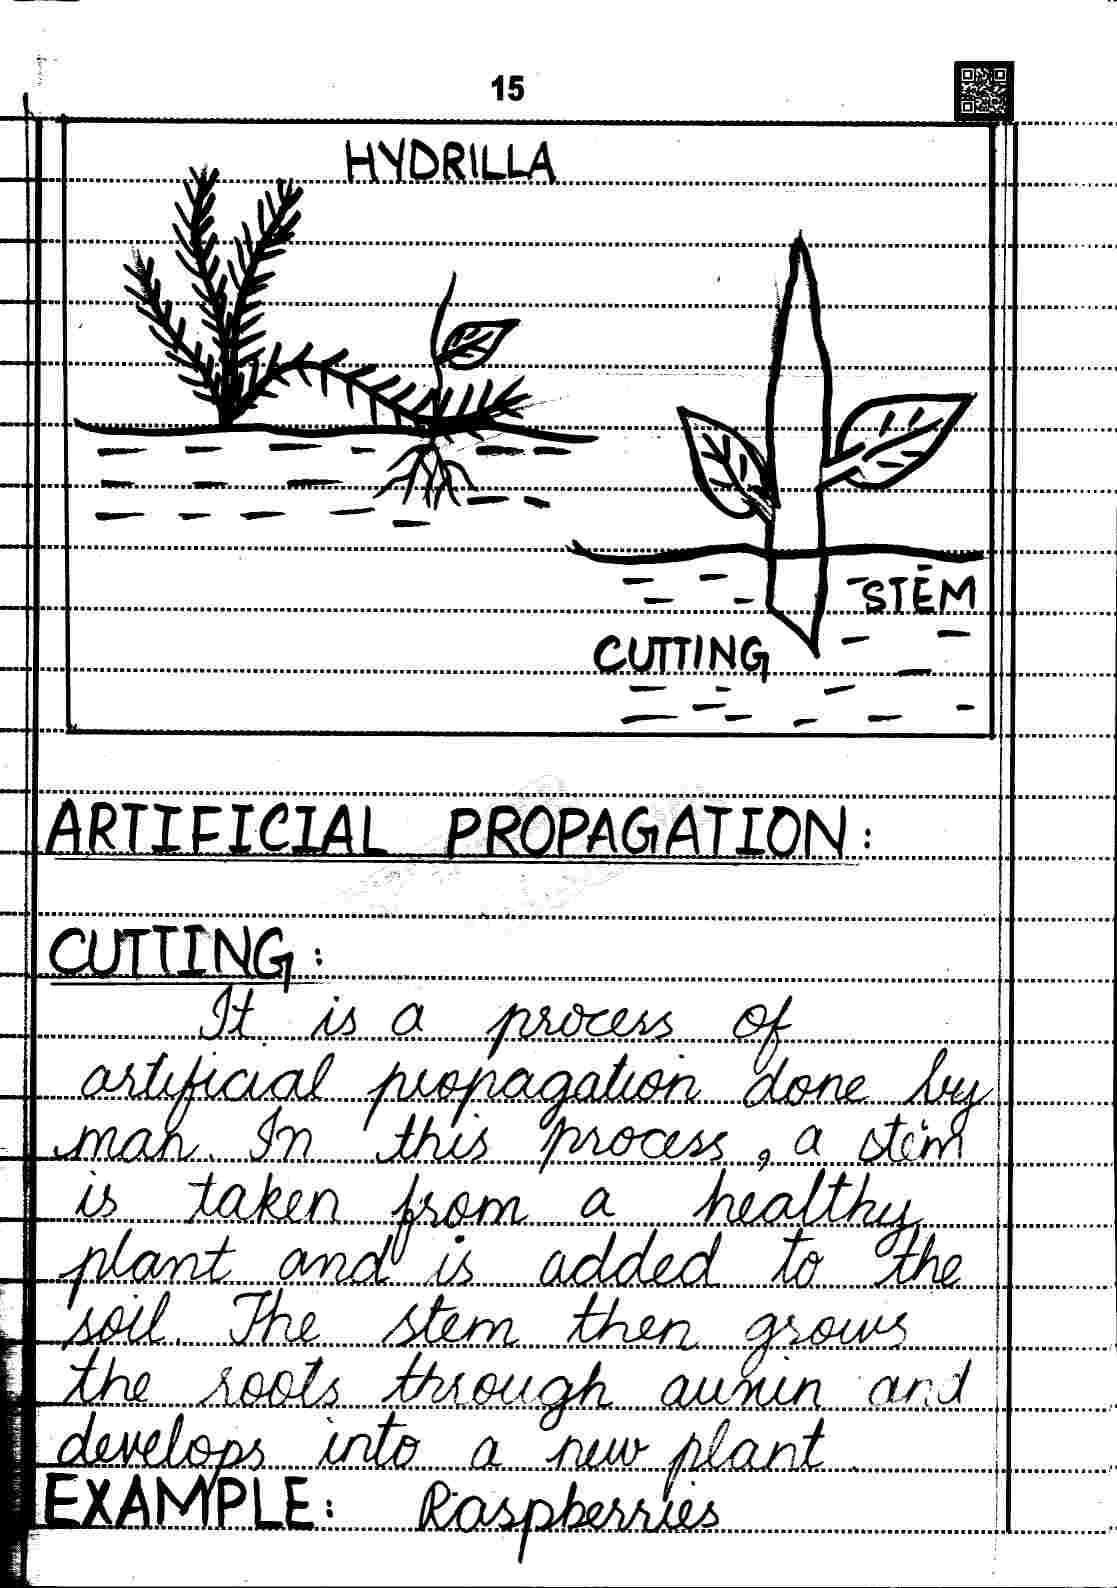 15
HYDRILLA
STEM
CUTTING
ARTIFICIAL PROPAGATION:
CUTTING:
It is a process of
artificial propagation done by
man. In this process, a stem
is taken from a healthy
plant and is added to the
soil. The stem then grows
the roots through auxin and
develops into a new plant.
EXAMPLE: Raspberries